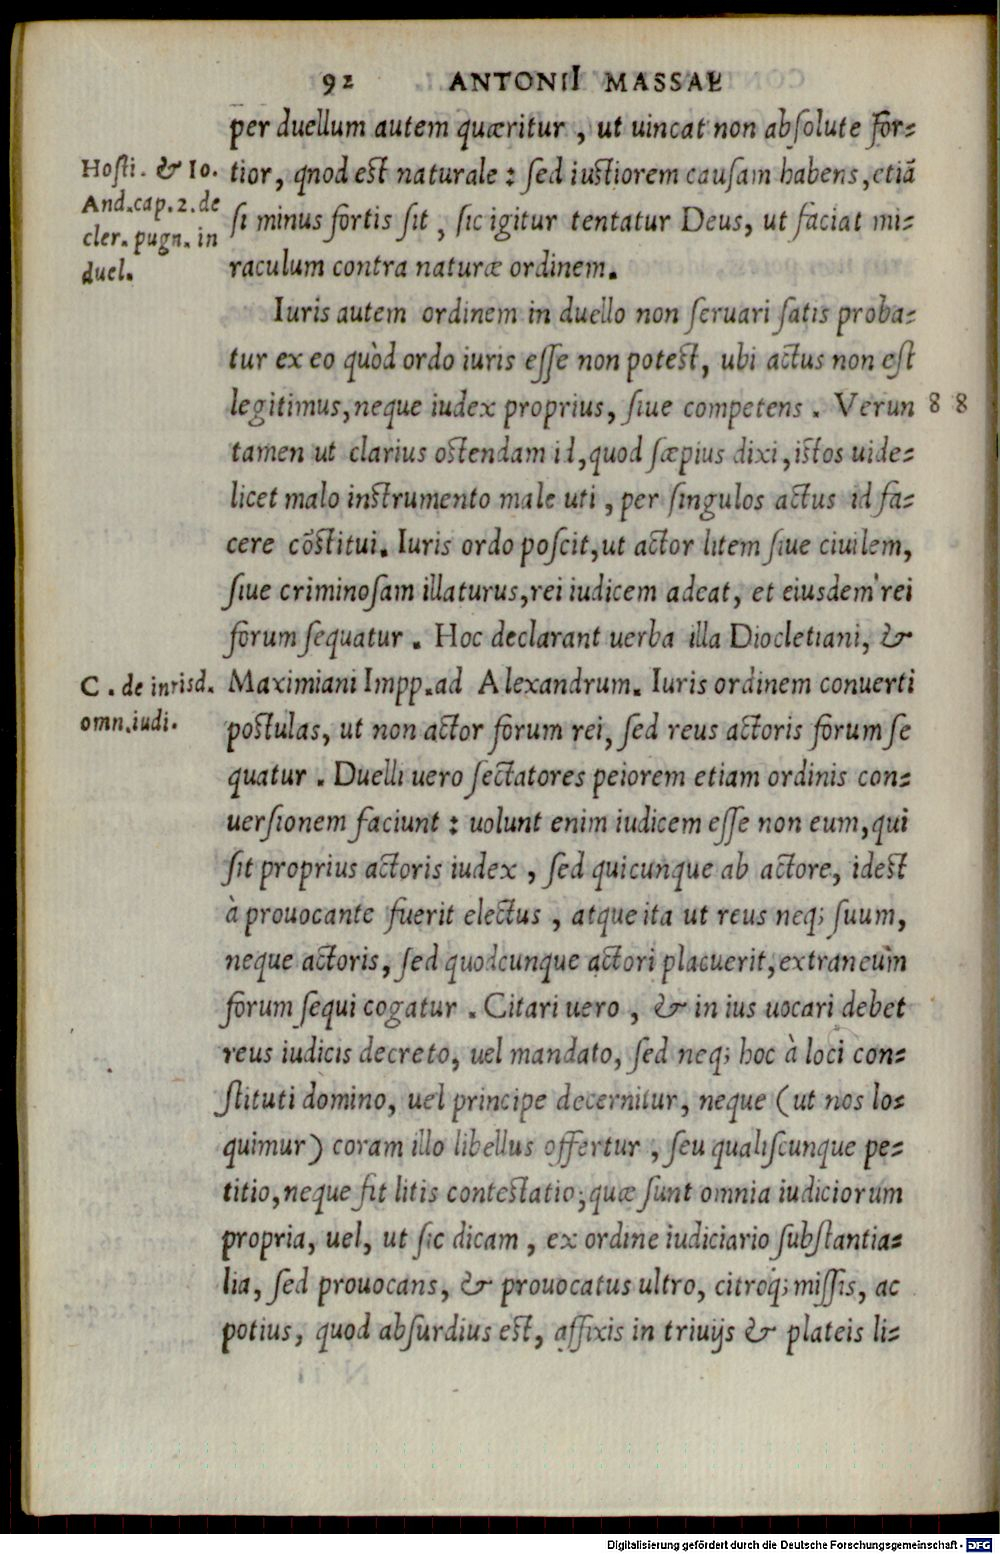 92 ANTONII MASSAE
per duellum autem quæritur, ut uincat non absolute for-
Hosti. & Io. tior, qnod est naturale: sed iustiorem causam habens, etiã
And.cap.2.de si minus fortis sit, sic igitur tentatur Deus, ut faciat mi-
cler. pugn. in raculum contra naturæ ordinem.
duel.
Iuris autem ordinem in duello non seruari satis proba-
tur ex eo quòd ordo iuris esse non potest, ubi actus non est
legitimus, neque iudex proprius, siue competens. Verun 88
tamen ut clarius ostendam id, quod sæpius dixi, istos uide-
licet malo instrumento male uti, per singulos actus id fa-
cere cõstitui. Iuris ordo poscit, ut actor litem siue ciuilem,
siue criminosam illaturus, rei iudicem adeat, et eiusdem rei
forum sequatur. Hoc declarant uerba illa Diocletiani, &
C. de inrisd. Maximiani Impp. ad Alexandrum. Iuris ordinem conuerti
omn.iudi. postulas, ut non actor forum rei, sed reus actoris forum se
quatur. Duelli uero sectatores peiorem etiam ordinis con-
uersionem faciunt: uolunt enim iudicem esse non eum, qui
sit proprius actoris iudex, sed quicunque ab actore, idest
à prouocante fuerit electus, atque ita ut reus neq; suum,
neque actoris, sed quodcunque actori placuerit, extraneum
forum sequi cogatur. Citari uero, & in ius uocari debet
reus iudicis decreto, uel mandato, sed neq; hoc à loci con-
stituti domino, uel principe decernitur, neque (ut nos lo-
quimur) coram illo libellus offertur, seu qualiscunque pe-
titio, neque fit litis contestatio; quæ sunt omnia iudiciorum
propria, uel, ut sic dicam, ex ordine iudiciario substantia-
lia, sed prouocans, & prouocatus ultro, citroq; missis, ac
potius, quod absurdius est, affixis in triuijs & plateis li-
Digitalisierung gefördert durch die Deutsche Forschungsgemeinschaft - DFG